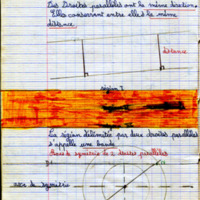 Des droites parallèles ont la même direction.
Elles conservent entre elles la même
distance.
distance
région I
La région délimitée par deux droites parallèles
s'appelle une bande.
Axe de symétrie de 2 droites parallèles
axe de symétrie